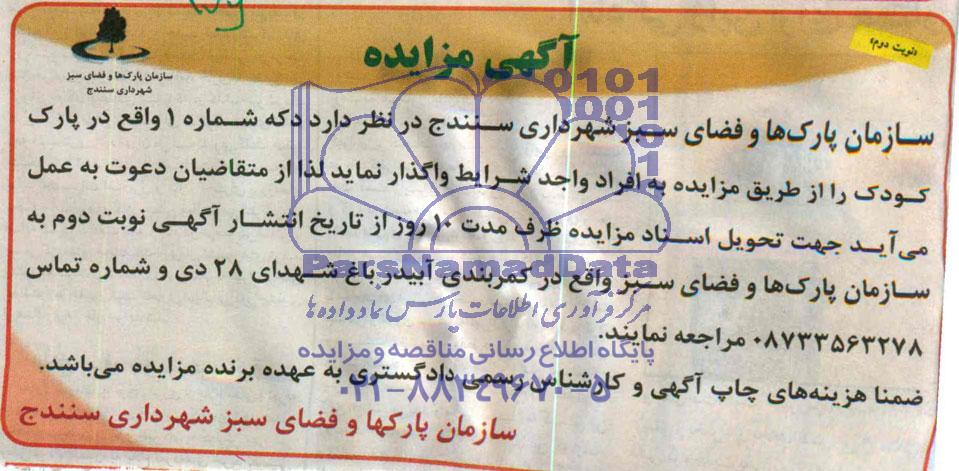 «نوبت دوم»
آگهی مزایده
سازمان پارک‌ها و فضای سبز
شهرداری سنندج
سازمان پارک‌ها و فضای سبز شهرداری سنندج در نظر دارد دکه شماره ۱ واقع در پارک
کودک را از طریق مزایده به افراد واجد شرایط واگذار نماید لذا از متقاضیان دعوت به عمل
می‌آید جهت تحویل اسناد مزایده ظرف مدت ۱۰ روز از تاریخ انتشار آگهی نوبت دوم به
سازمان پارک‌ها و فضای سبز واقع در کمربندی آبیدر باغ شهدای ۲۸ دی و شماره تماس
۰۸۷۳۳۵۶۳۲۷۸ مراجعه نمایند.
ضمنا هزینه‌های چاپ آگهی و کارشناس رسمی دادگستری به عهده برنده مزایده می‌باشد.
سازمان پارکها و فضای سبز شهرداری سنندج
0101
0001
101
ParsNamadData
مرکز فرآوری اطلاعات پارس نماد داده ها
پایگاه اطلاع رسانی مناقصه و مزایده
۰۲۱-۸۸۳۴۹۶۷۰-۵